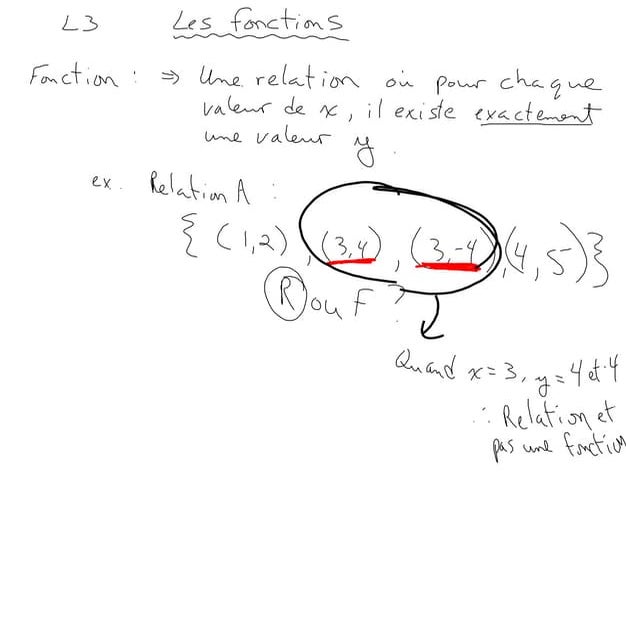 L3 Les fonctions
Fonction : ⇒ Une relation où pour chaque
valeur de x, il existe exactement
une valeur y.
ex. Relation A :
{ (1,2), (3,4), (3,-4), (4,5) }
R ou F ?
Quand x = 3, y = 4 et -4
∴ Relation et
pas une fonction